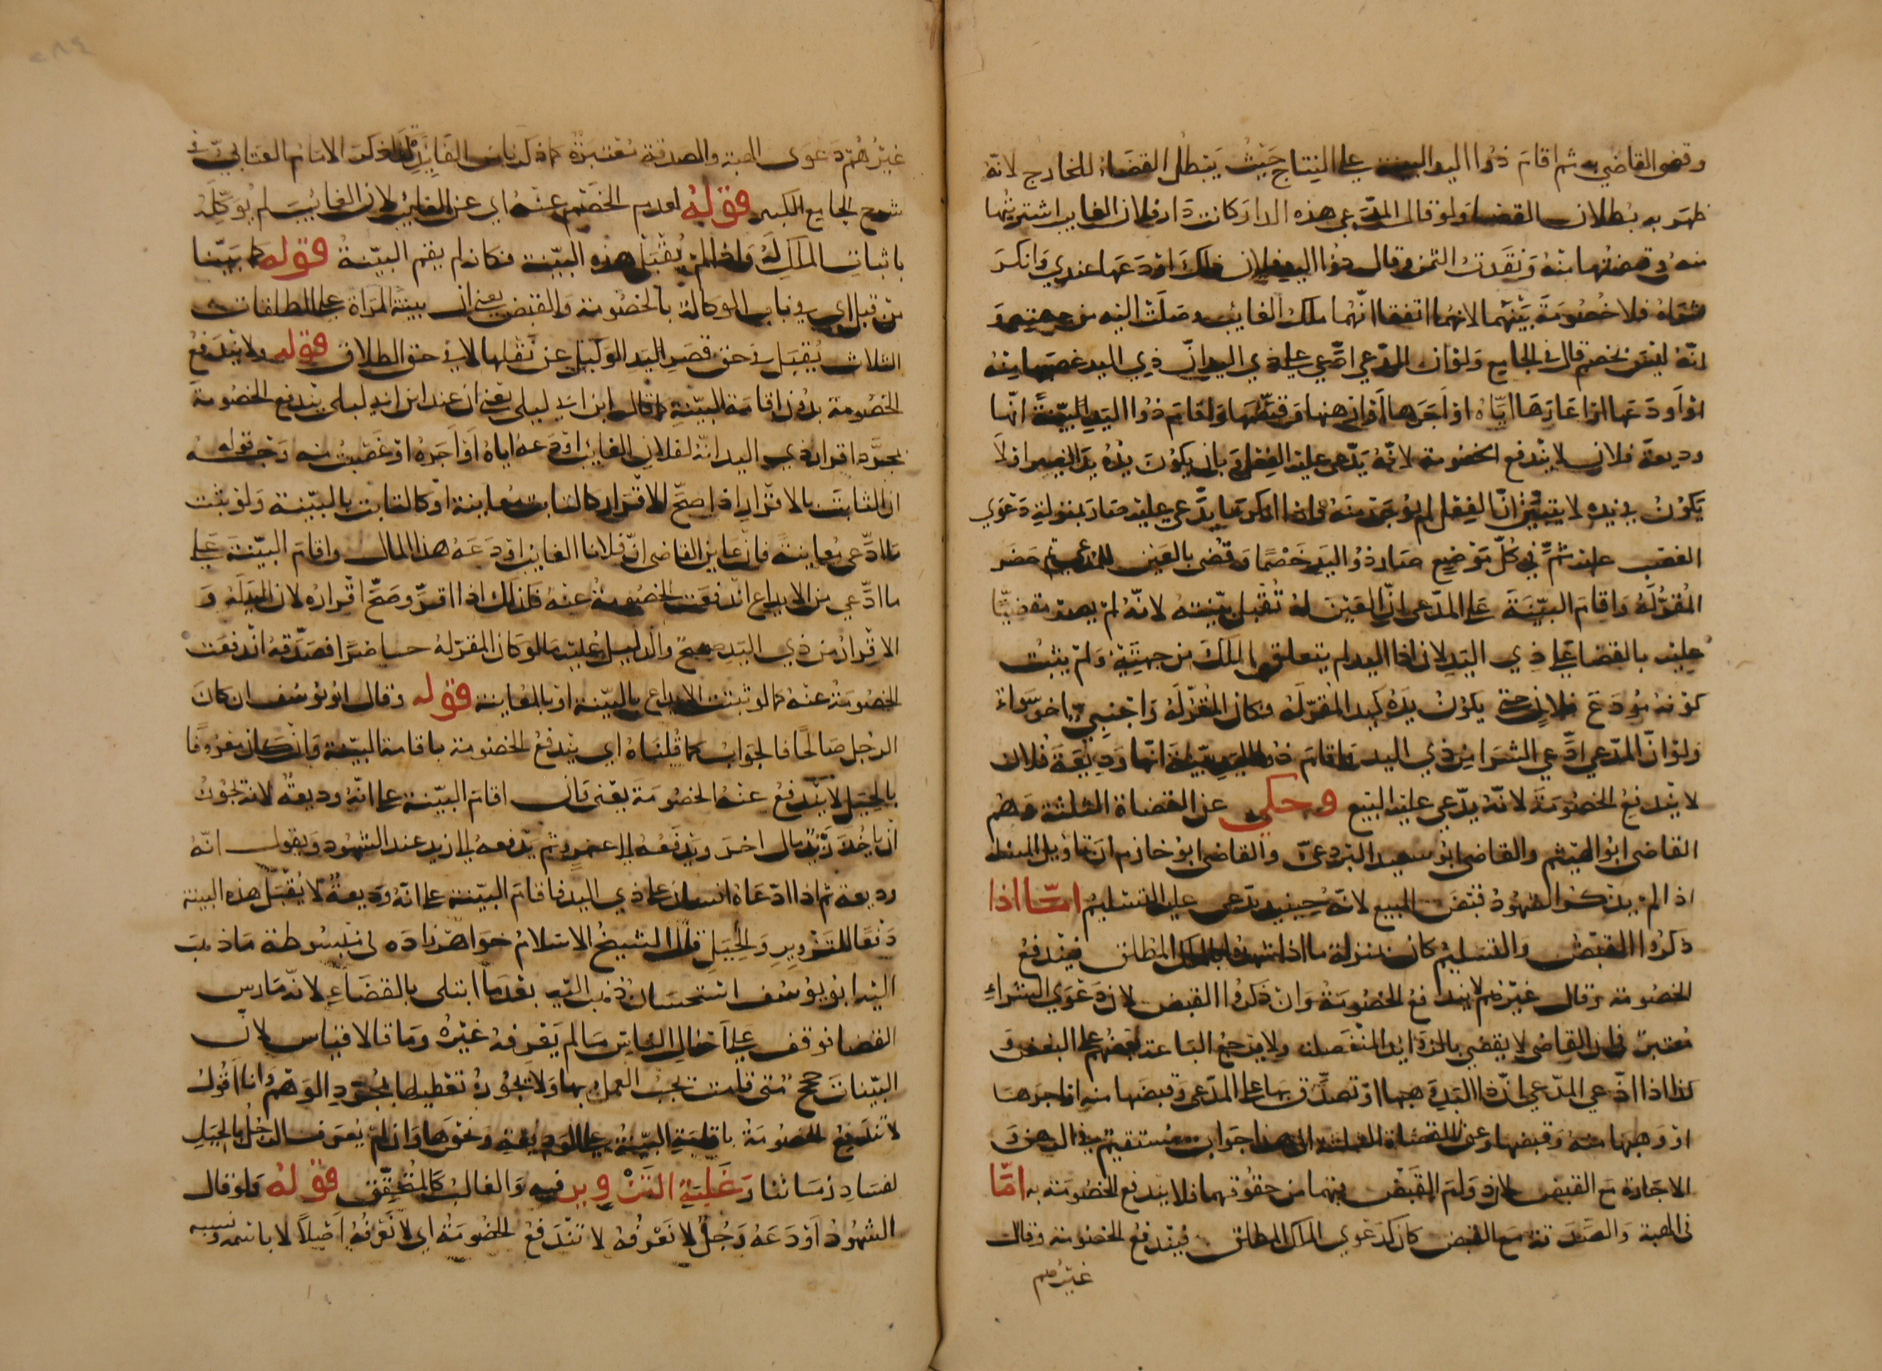 وقضى القاضي به ثم اقام ذوا اليد البينة على النتاج حيث يبطل القضاء للخارج لانه
ظهر به بطلان القضا ولو قال المدعي هذه الدار كانت دار فلان الغايب اشتريتها
منه وقبضتها منه ونقدت الثمن وقال ذوا اليد فلان ذلك اودعها عندي وانكر
شراه فلا خصومة بينهما لانهما اتفقا انهما ملك الغايب وصلت اليه من جهته و
انه ليس بخصم قال في الجامع ولو ان المدعي ادعى على ذي اليد ان ذي اليد غصبها منه
او اودعها او اعارها اياه او اجرها او ارتهنها وقبضها واقام ذوا اليد البينة انها
وديعة فلان لا يندفع الخصومة لانه يدعي عليه الفعل بان يكون يده يد الغير او لا
يكون في يده لا يتبين ان الفعل لم يوجد منه فاذا لم يدعي عليه صار بمنزلة دعوى
الغصب عليه ثم في كل موضع صار ذوا اليد خصما وقضى بالعين للمدعي ثم حضر
المقر له واقام البينة على المدعي ان العين له تقبل بينته لانه لم يصر مقضيا
عليه بالقضا على ذي اليد لان ذا اليد لم يتعلق الملك من جهته ولم يثبت
كونه مودع فلان حتى يكون يده كيد المقر له فكان المقر له واجنبي اخر سواء
ولو ان المدعي ادعى الشرا من ذي اليد فاقام ذوا اليد بينة انها وديعة فلان
لا يندفع الخصومة لانه يدعي عليه البيع وحكي عن القضاة الثلثة وهم
القاضي ابو الهيثم والقاضي ابو سعيد البردعي والقاضي ابو خازم ان تاويل المسئلة
اذا لم يذكر الشهود قبض المبيع لانه حينئذ يدعي عليه التسليم اما اذا
ذكروا القبض والتسليم كان بمنزلة ما اذا شهدوا بالملك المطلق فيندفع
الخصومة وقال غيرهم لا يندفع الخصومة وان ذكروا القبض لان دعوى الشراء
معتبرة فان القاضي لا يقضي بالزوايد المنفصلة ولا يرجع الباعة بعضهم على البعض و
كذا اذا ادعي المدعي ان ذا اليد وهبها او تصدق بها على المدعي وقبضها منه او اجرها
او رهبها منه وقبضها وعن القضاة الثلثة ان هذا جواب مستقيم في الرهن و
الاجارة مع القبض لان ولم القبض فيهما من حقوقهما فلا يندفع الخصومة به اما
في الهبة والصدقة مع القبض كان كدعوى الملك المطلق فيندفع الخصومة وقال
غيرهم
غيرهم دعوى الهبة والصدقة معتبرة كما ذكر الامام العتابي في
شرح الجامع الكبير قوله لعدم الخصم عنه اي عن الغايب لان الغايب لم يوكله
باثبات الملك له واذا لم يقبل هذه البينة فكانه لم يقم البينة قوله كما بينا
من قبل اي في باب الوكالة بالخصومة والقبض يعني ان بينة المراة على الطلقات
الثلاث يقبل في حق قصر اليد الوكيل عن نقلها لا في حق الطلاق قوله ولا يندفع
الخصومة بدون اقامة البينة كما قاله ابن ابي ليلى يعني ان عند ابن ابي ليلى يندفع الخصومة
بمجرد اقرار ذي اليد انه لفلان الغايب اودعه اياه او اجره او غصبت منه وجه قوله
ان الثابت بالاقرار اذا صح الاقرار كالثابت معاينة او كالثابت بالبينة ولو ثبت
ما ادعي معاينة فان عاين القاضي ان فلانا الغايب اودعه هذا المال واقام البينة على
ما ادعي من الايداع اندفعت الخصومة عنه فكذلك اذا اقر وصح اقراره لان اليد له و
الاقرار من ذي اليد صحيح والدليل عليه ما لو كان المقر له حاضرا فصدقه اندفعت
الخصومة عنه كما لو ثبتت الايداع بالبينة او بالمعاينة قوله وقال ابو يوسف ان كان
الرجل صالحا فالجواب كما قلناه اي يندفع الخصومة باقامة البينة وان كان معروفا
بالحيل لا يندفع عنه الخصومة يعني وان اقام البينة على انه وديعة لانه تجوز
ان ياخذ زيد مال اخر ويدفعه الى عمرو ثم يدفعه الى زيد عند الشهود ويقول انه
وديعة ثم اذا ادعاه انسان على ذي اليد فاقام البينة على انه وديعة لا يقبل هذه البينة
دفعا للتزوير والحيل قال الشيخ الاسلام خواهر زاده في مبسوطه ما ذهب
اليه ابو يوسف استحسان ذهب اليه بعد ما ابتلى بالقضاء لانه مارس
القضا فوقف على احوال الناس ما لم يعرفه غيره وما قالا قياس لان
البينات حجج متى قامت يجب العمل بها ولا يجوز تعطيلها بمجرد الوهم وانا اقول
لا تندفع الخصومة باقامة البينة على الوديعة ونحوها وان لم يعرف الرجل بالحيل
لفساد زماننا وغلبة التزوير فيه والغالب كالمتحقق قوله ولو قال
الشهود اودعه رجل لا نعرفه لا تندفع الخصومة اي لا نعرفه اصلا لا باسمه ونسبه